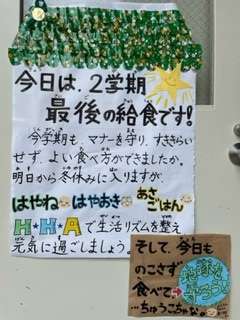 今日は、2学期
最後の給食です!
今学期も、マナーを守り、すききらい
せず、よい食べ方ができましたか。
明日から冬休みに入りますが、
はやね はやおき あさごはん
H★H★Aで生活リズムを整え
元気に過ごしましょう。
そして、今日も
のこさず
食べて
地球を
守ろう
…ちゅうごちゃな。